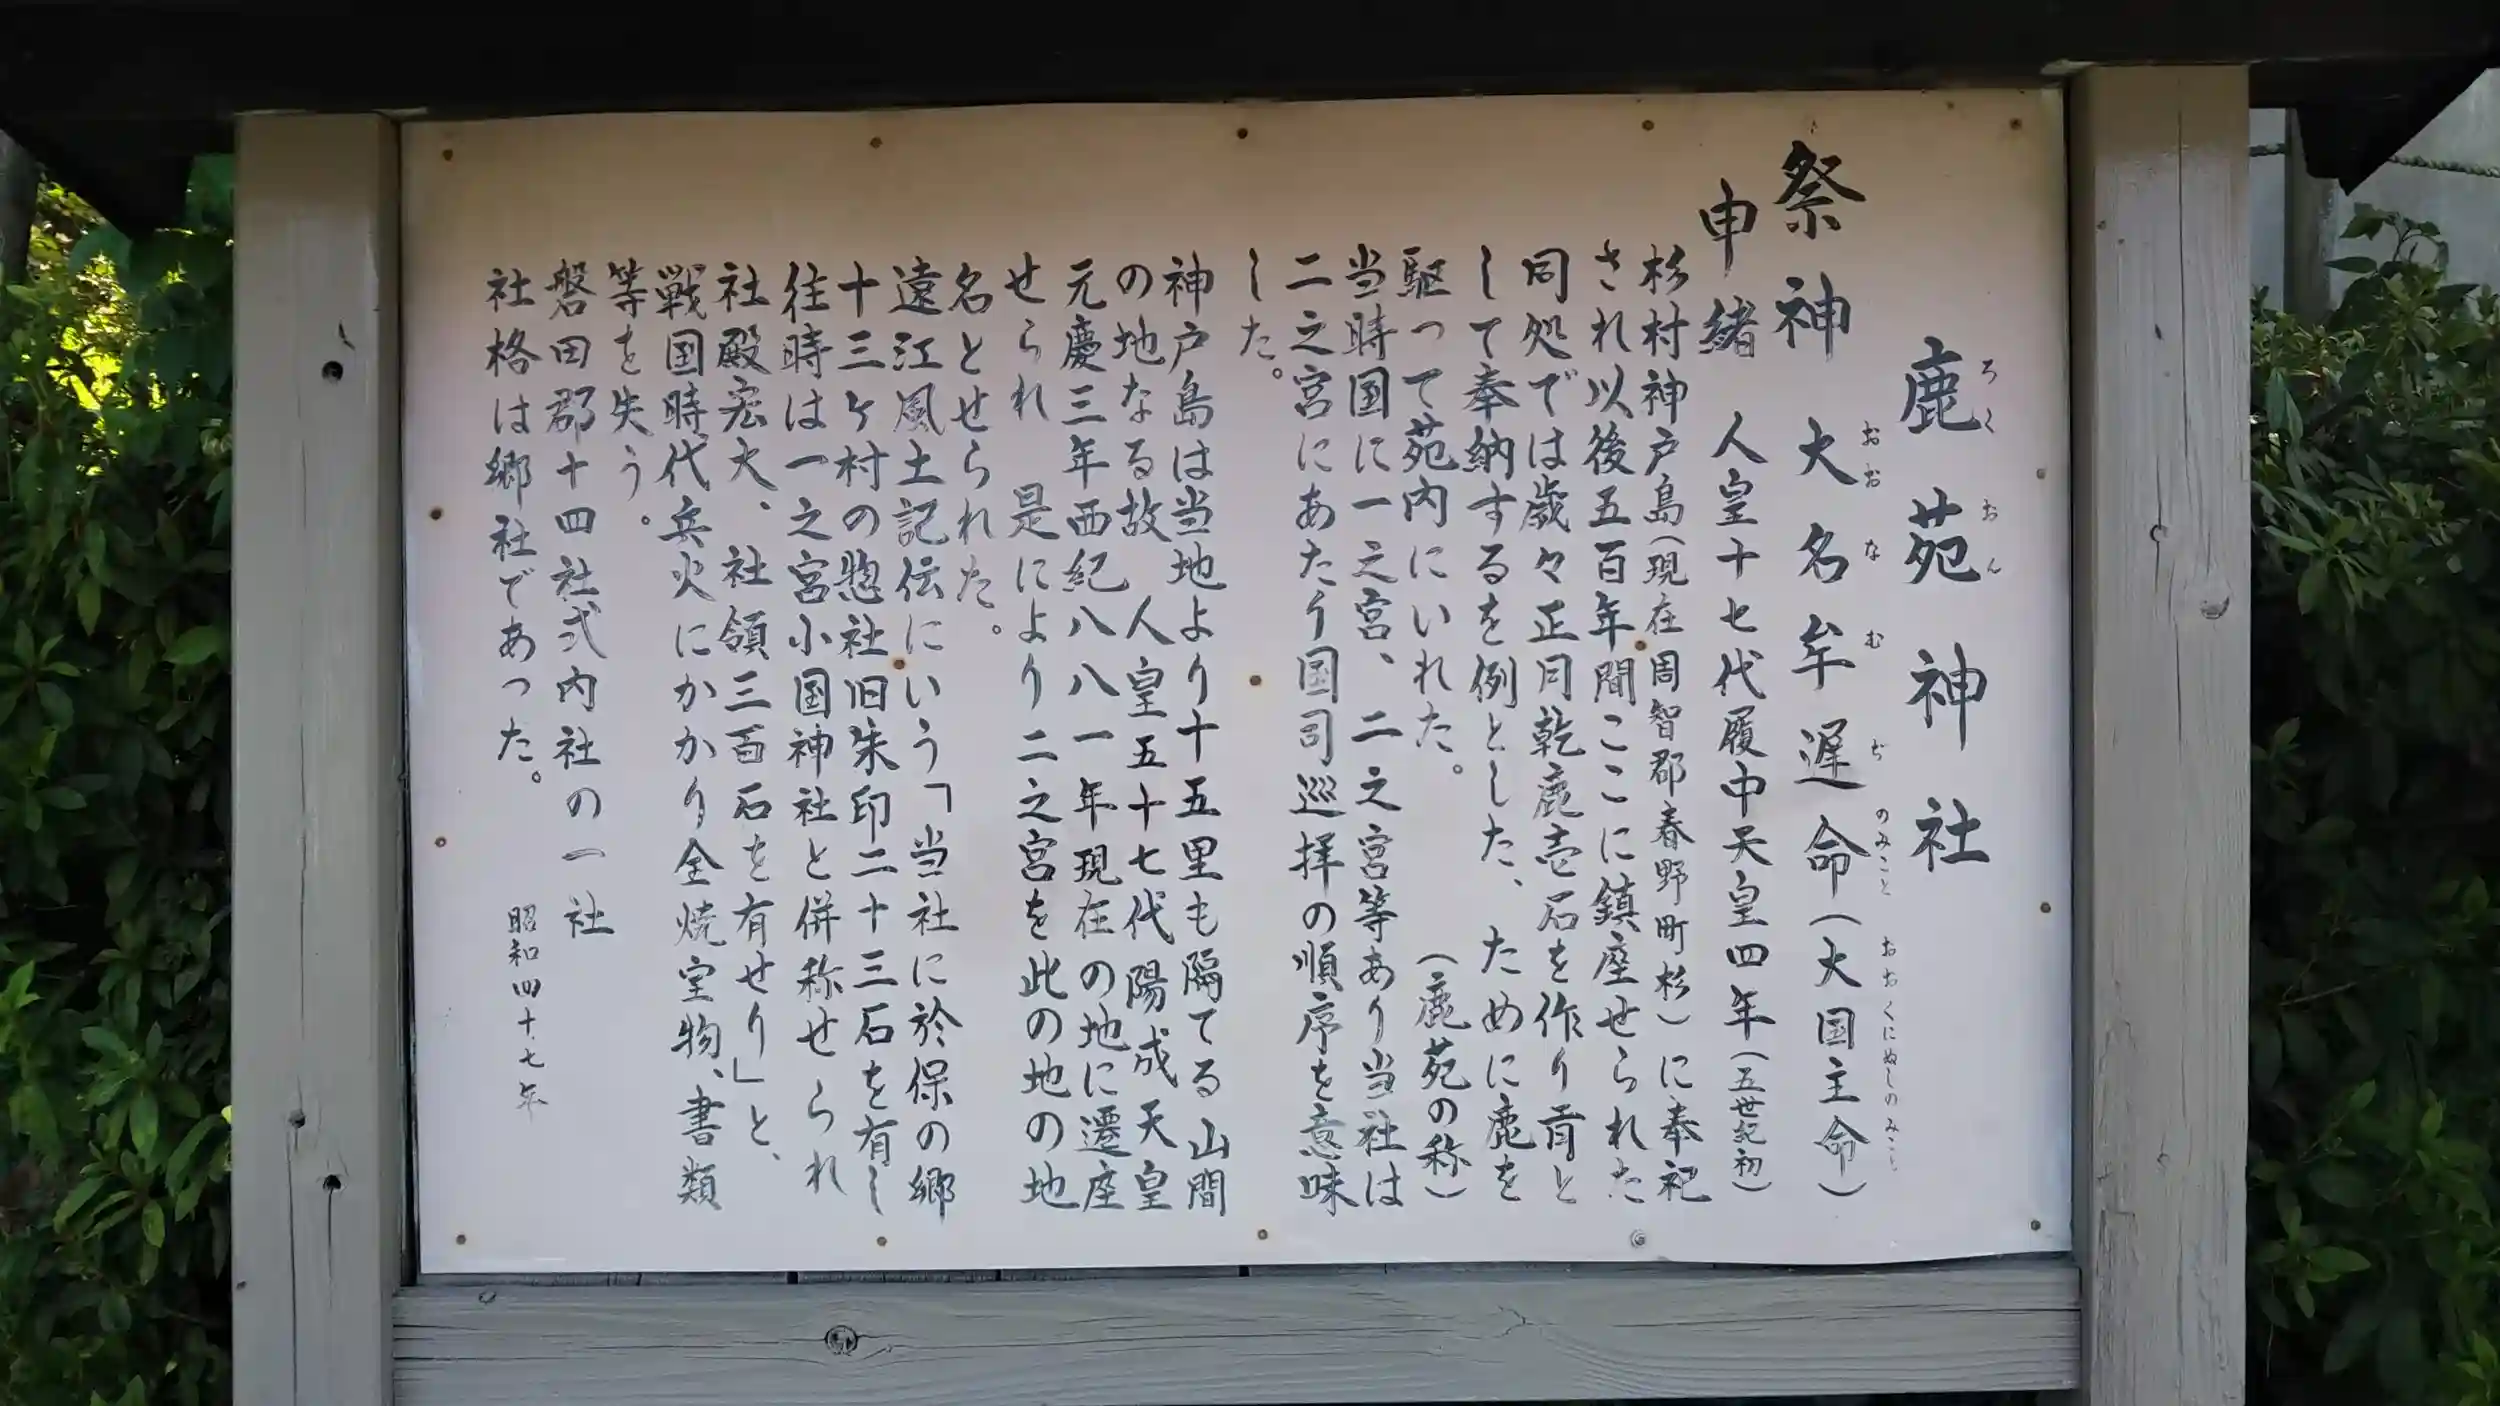 鹿苑神社
ろくおん
祭神 大名牟遅命(大国主命)
おおなむぢのみこと おおくにぬしのみこと
申緒 人皇十七代履中天皇四年(五世紀初)
杉村神戸島(現在周智郡春野町杉)に奉祀
され以後五百年間ここに鎮座せられた
同処では歳々正月乾鹿壱石を作り貢と
して奉納するを例とした、ために鹿を
駆って苑内にいれた。(鹿苑の称)
当時国に一之宮、二之宮等あり当社は
二之宮にあたり国司巡拝の順序を意味
した。
神戸島は当地より十五里も隔てる山間
の地なる故 人皇五十七代陽成天皇
元慶三年西紀八八一年現在の地に遷座
せられ 是により二之宮を此の地の地
名とせられた。
遠江風土記伝にいう「当社に於保の郷
十三ヶ村の惣社旧朱印二十三石を有し
往時は一之宮小国神社と併称せられ
社殿宏大、社領三百石を有せり」と、
戦国時代兵火にかかり全焼宝物、書類
等を失う。
磐田郡十四社式内社の一社
社格は郷社であった。
昭和四十七年